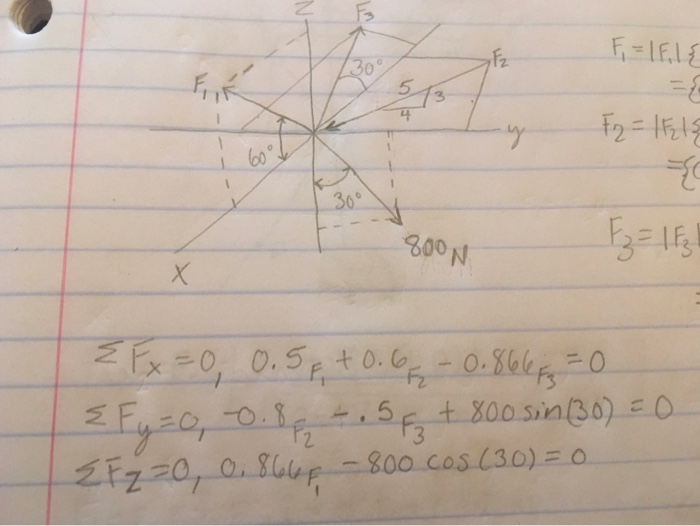 Z
F₃
F₁
30°
F₂
5
3
4
y
60°
30°
800 N
X
F₁ = |F₁| {
= {
F₂ = |F₂| {
= {
F₃ = |F₃|
=
ΣFx = 0, 0.5F₁ + 0.6F₂ - 0.866F₃ = 0
ΣFy = 0, -0.8F₂ - .5F₃ + 800 sin(30) = 0
ΣFZ = 0, 0.866F₁ - 800 cos(30) = 0